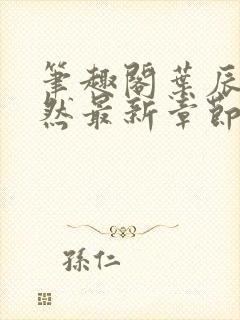 筆趣閣葉辰
然最新章節
孫仁